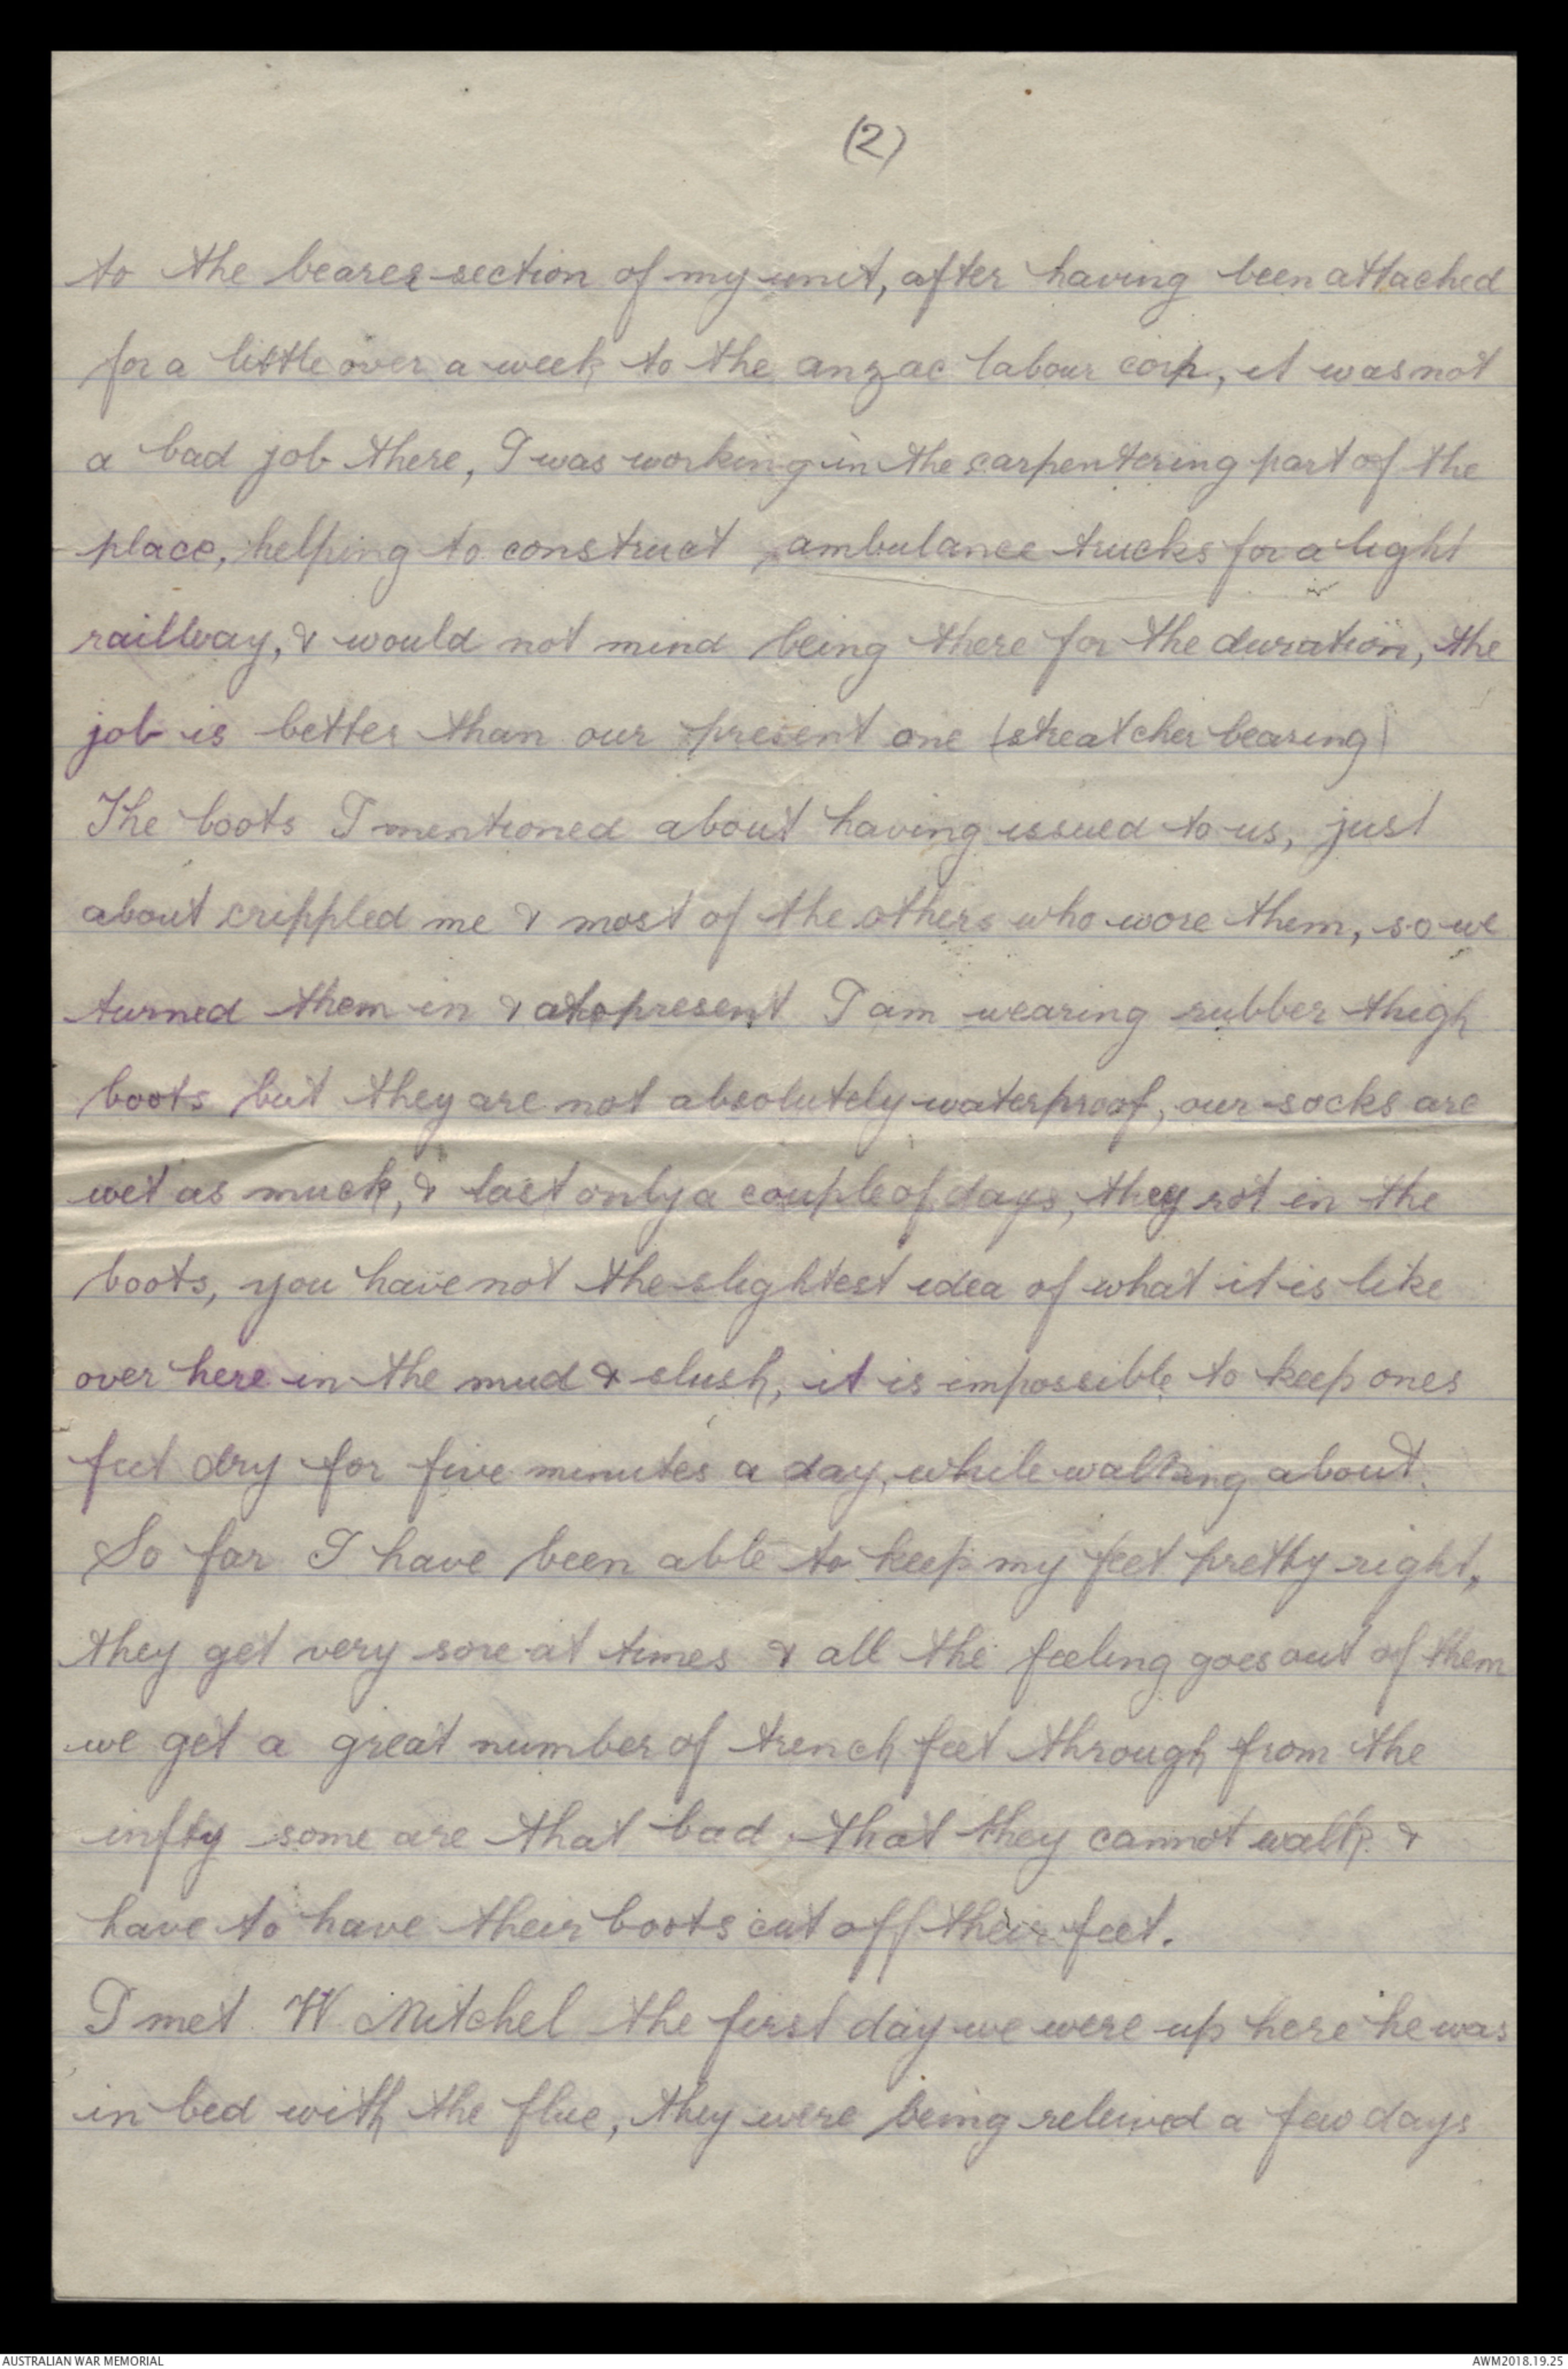 (2)
to the bearer section of my unit, after having been attached
for a little over a week to the anzac labour corp, it was not
a bad job there, I was working in the carpentering part of the
place, helping to construct ambulance trucks for a light
raillway, & would not mind being there for the duration, the
job is better than our present one (streatcher bearing)
The boots I mentioned about having issued to us, just
about crippled me & most of the others who wore them, so we
turned them in & at present I am wearing rubber thigh
boots but they are not absolutely waterproof, our socks are
wet as muck, & last only a couple of days, they rot in the
boots, you have not the slightest idea of what it is like
over here in the mud & slush, it is impossible to keep ones
feet dry for five minutes a day, while walking about.
So far I have been able to keep my feet pretty right,
they get very sore at times & all the feeling goes out of them
we get a great number of trench feet through from the
infty some are that bad that they cannot walk &
have to have their boots cut off their feet.
I met W Mitchel the first day we were up here he was
in bed with the flue, they were being releived a few days
AUSTRALIAN WAR MEMORIAL
AWM2018.19.25